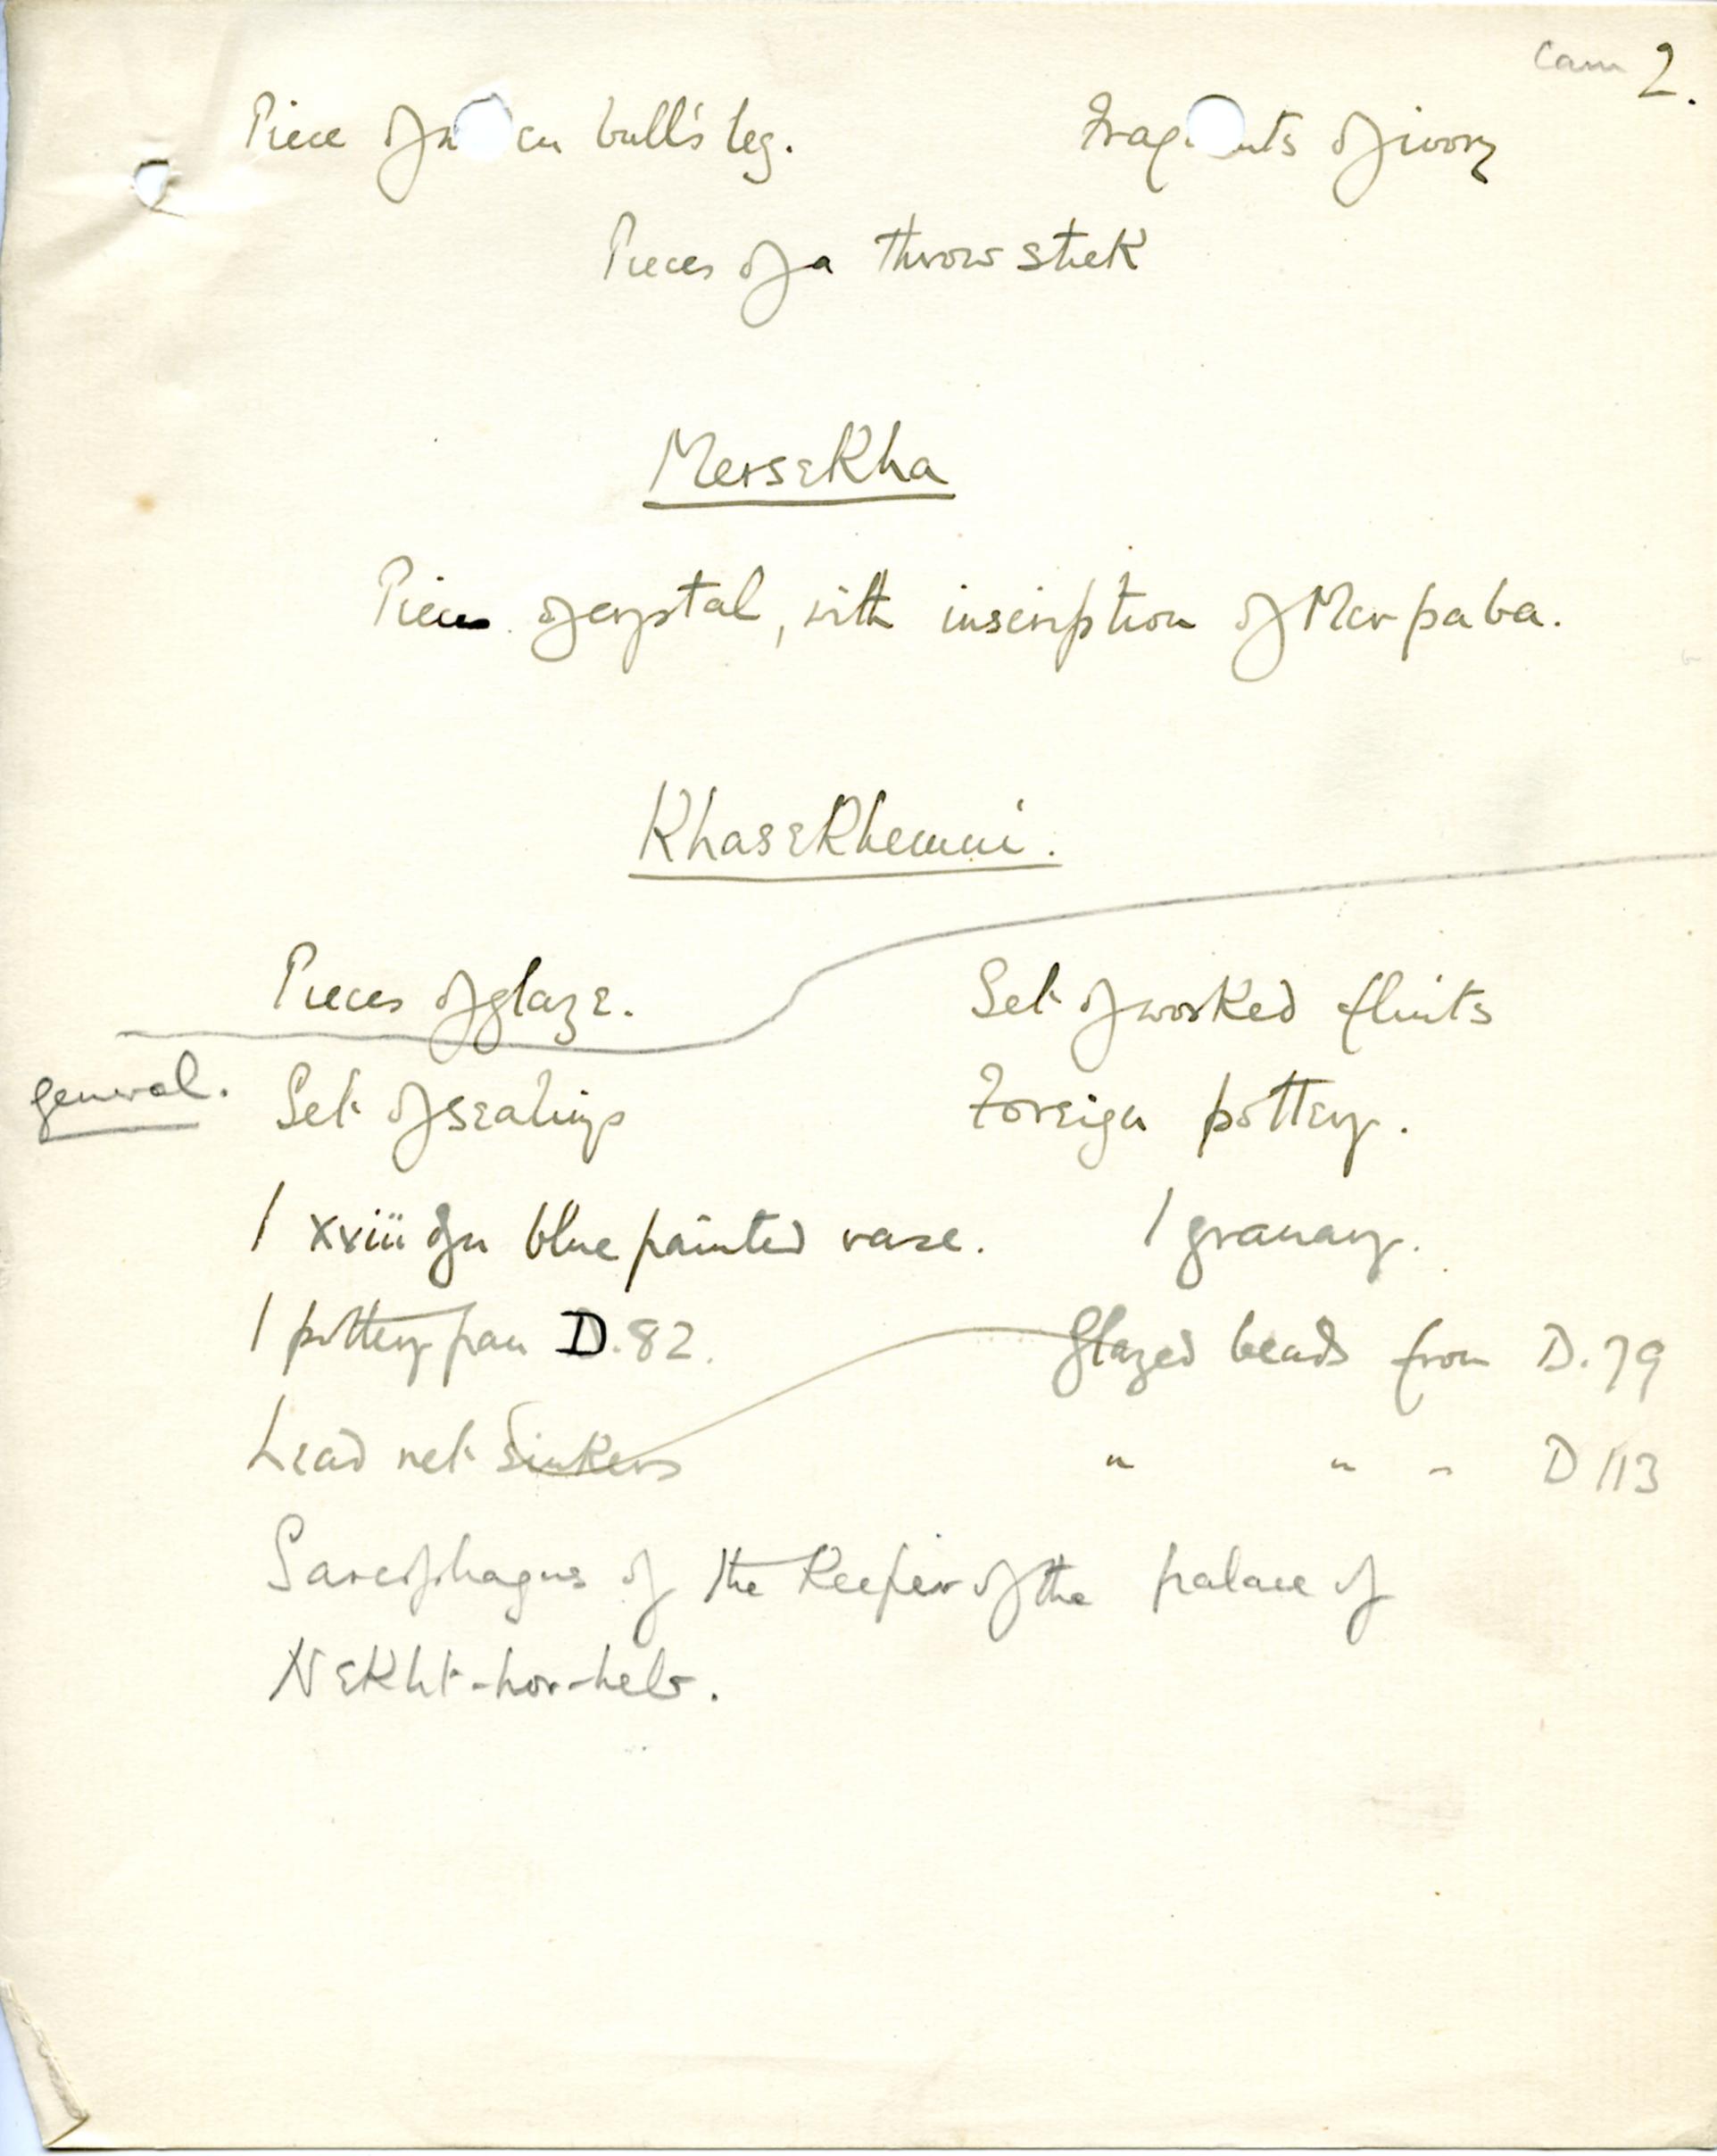 Cam 2.
Piece of w en bull's leg. Frag nts of ivory
Pieces of a throw stick
Mersekha
Piece of crystal, with inscription of Merpaba.
Khasekhemui.
Pieces of glaze. Set of worked flints
general. Set of sealings Foreign pottery.
1 xviii dyn blue painted vase. 1 granary.
1 pottery pan D.82. Glazed beads from D.79
Lead net sinkers " " - D 113
Sarcophagus of the Keeper of the palace of
Nekht-hor-heb.